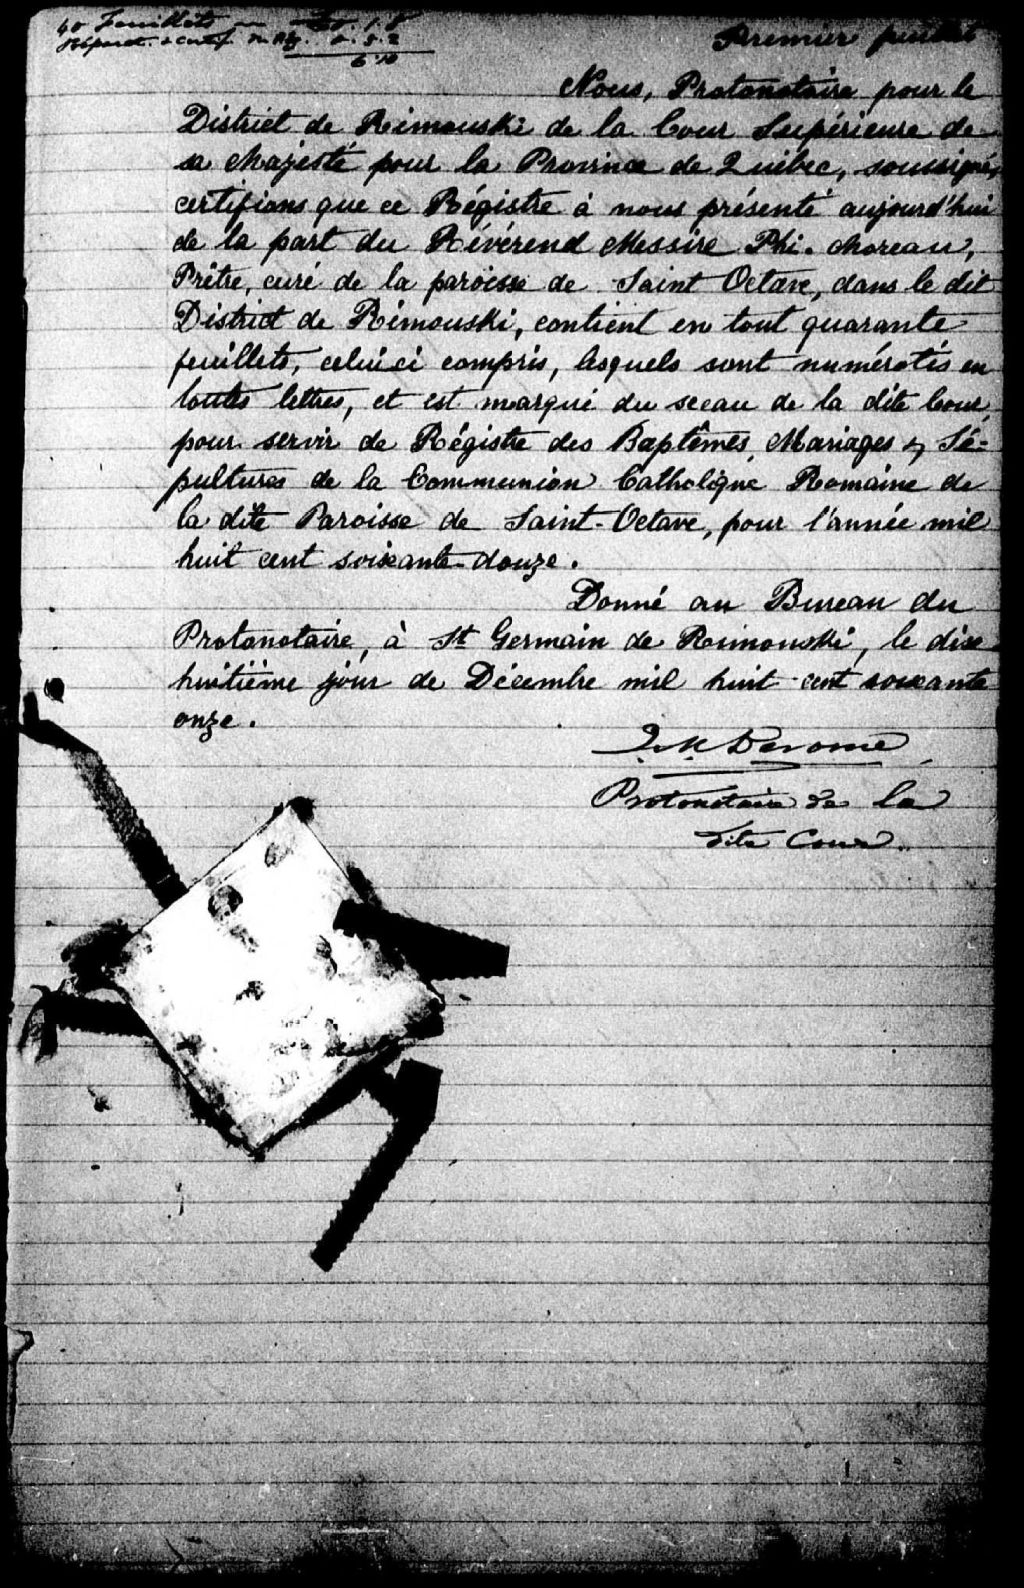 40 Feuillets
Premier feuillet
Nous, Protonotaire pour le
District de Rimouski de la Cour Supérieure de
sa Majesté pour la Province de Québec, soussigné,
certifions que ce Régistre à nous présenté aujourd'hui
de la part du Révérend Messire Phi. Moreau,
Prêtre, curé de la paroisse de Saint Octave, dans le dit
District de Rimouski, contient en tout quarante
feuillets, celui ci compris, lesquels sont numérotés en
toutes lettres, et est marqué du sceau de la dite Cour,
pour servir de Régistre des Baptêmes, Mariages & Sé-
pultures de la Communion Catholique Romaine de
la dite Paroisse de Saint-Octave, pour l'année mil
huit cent soixante-douze.
Donné au Bureau du
Protonotaire, à St Germain de Rimouski, le dix
huitième jour de Décembre mil huit cent soixante
onze.
Derome
Protonotaire de la
dite Cour.